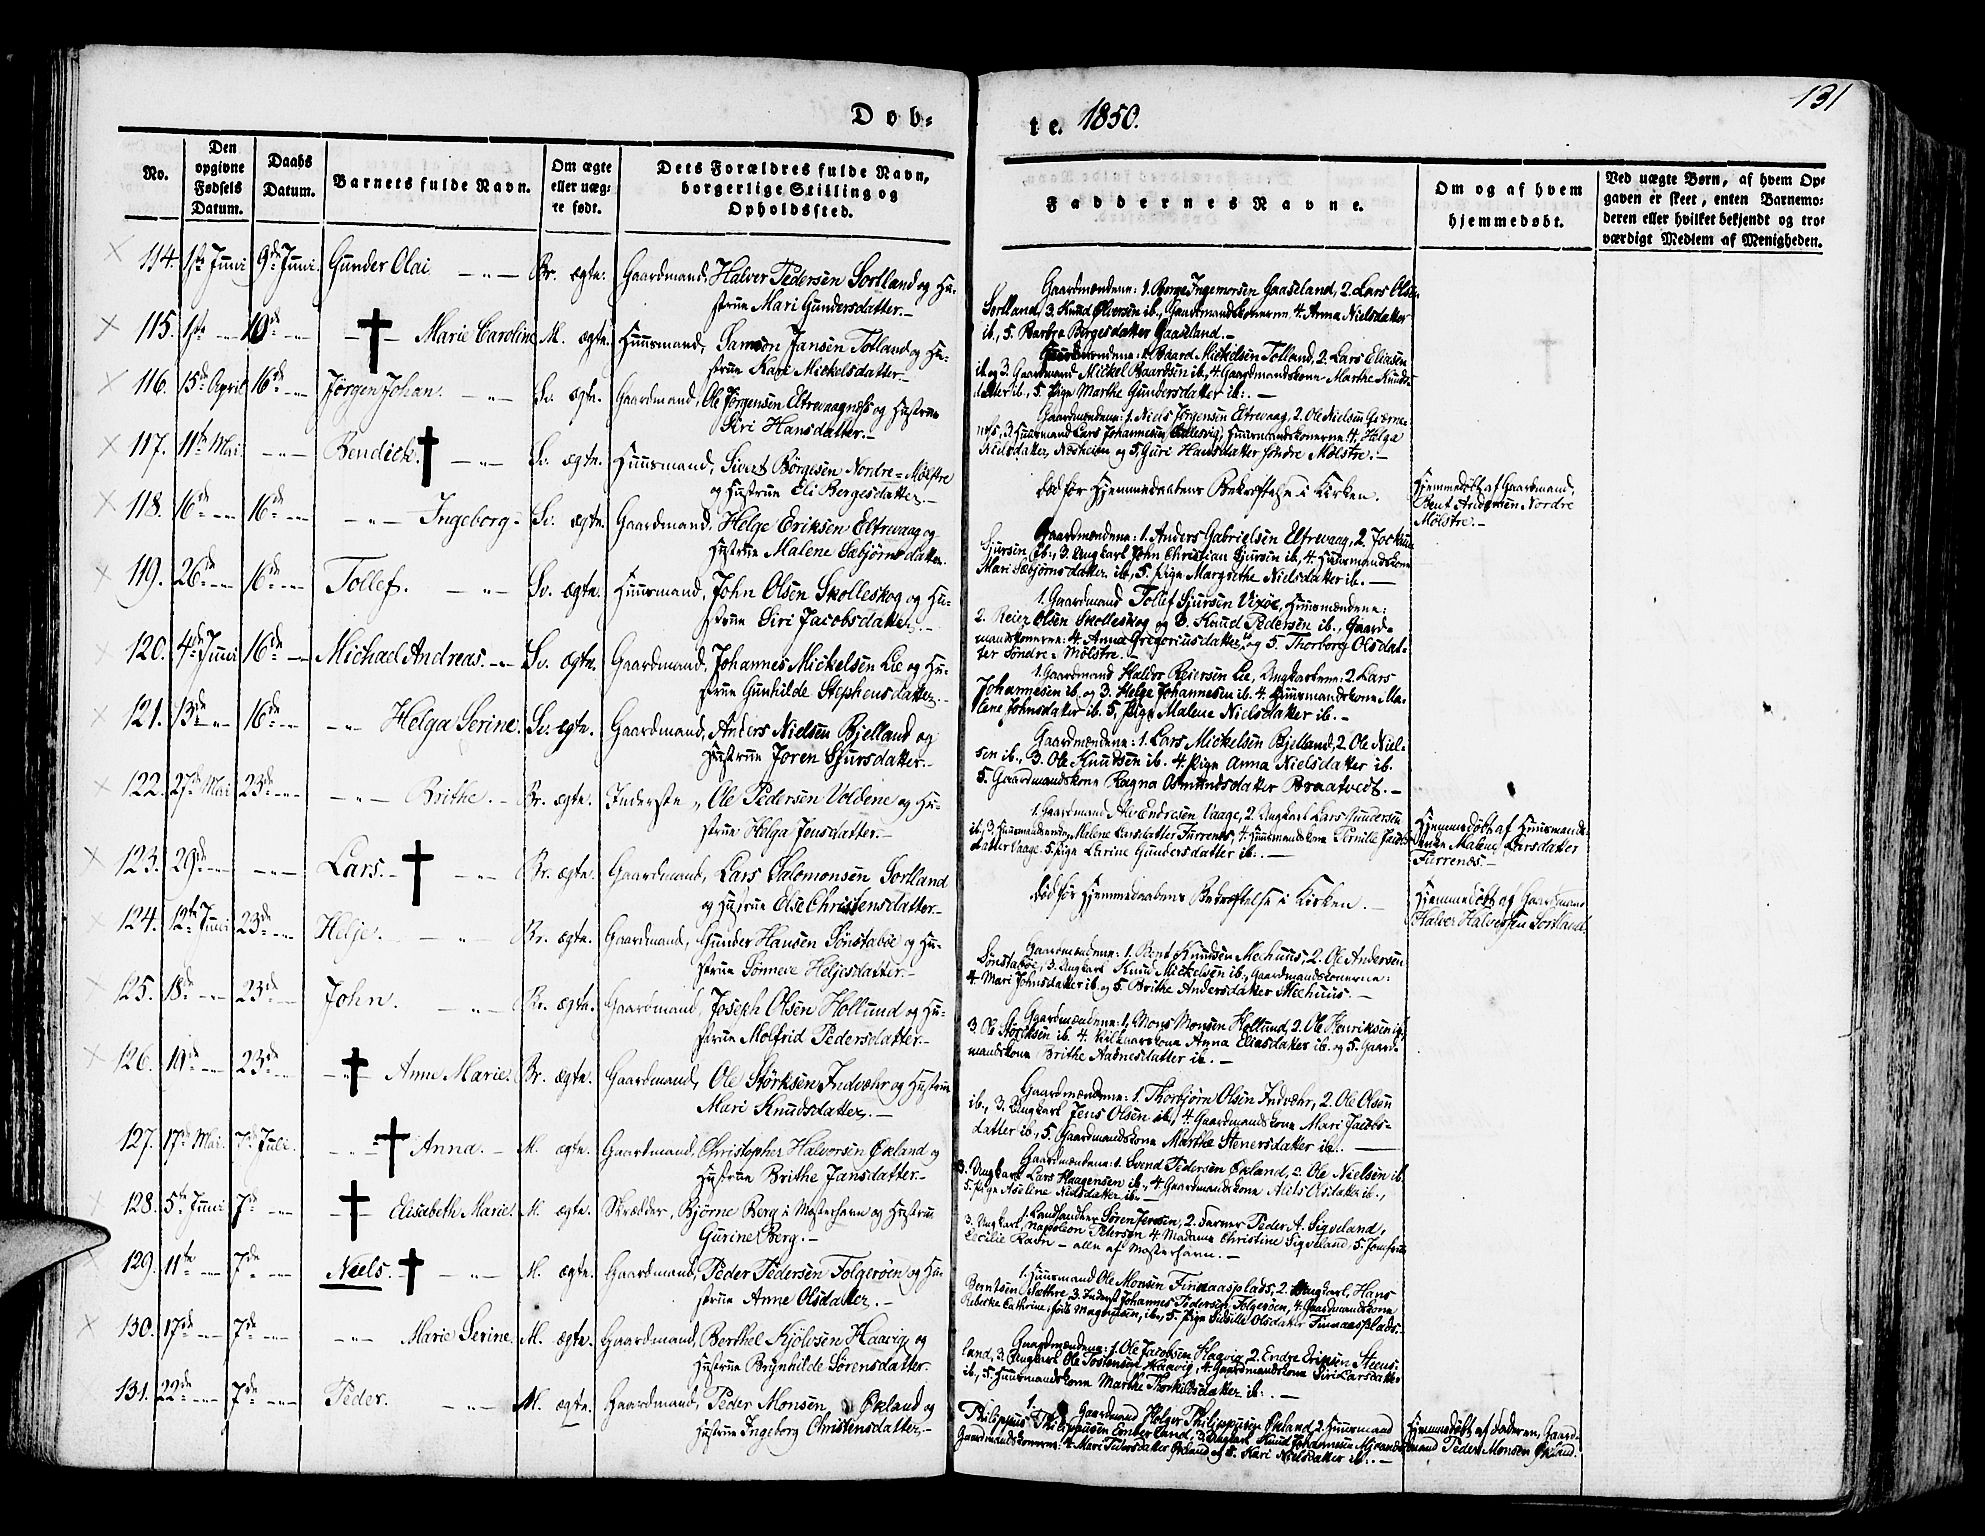 Døb-
te. 1850.
131
No.
Den opgivne Fødsels Datum.
Daabs Datum.
Barnets fulde Navn.
Om ægte eller uæg-te født.
Dets Forældres fulde Navn, borgerlige Stilling og Opholdssted.
Faddernes Navne.
Om og af hvem hjemmedøbt.
Ved uægte Børn, af hvem Op-gaven er skeet, enten Barnemo-deren eller hvilket bekjendt og tro-værdigt Medlem af Menigheden.
114. 1ste Juni 9de Juni. Gunder Olai Br. ægte. Gaardmand, Halver Pedersen Sortland og Hu-
strue Mari Gundersdatter.
Gaardmændene: 1. Børge Ingemorsen Gaaseland, 2. Lars Olsen
Sortland, 3. Knud Olversen ib., Gaardmandskonerne 4. Anna Nielsdatter
ib., 5. Barbra Børgesdatter Gaaseland.
115. 1ste 10de Marie Caroline M. ægte. Huusmand, Samson Jansen Totland og Hu-
strue Kari Mickelsdatter.
Gaardmændene: 1. Baard Mickelsen Tolland, 2. Lars Eliasen
ib og 3. Gaardmand Mickel Baardsen ib., 4. Gaardmandskone Marthe Knuds-
datter ib., 5. Pige Marthe Gundersdatter ib.
116. 15de April 16de Jørgen Johan. Sv. ægte. Gaardmand, Ole Jørgensen Eltrevaagnæss og Hustrue
Siri Hansdatter.
Gaardmændene: 1. Niels Jørgensen Eltrevaag, 2. Ole Nielsen
3. Huusmand Lars Johannesen, Huusmandskonerne 4. Helga
Nielsdatter, og 5. Guri Hansdatter Søndre Mølstre.
117. 11te Mai Bendick. Sv. ægte. Huusmand, Sivert Børgesen Nordre-Mølstre
og Hustrue Eli Bergesdatter.
død før Hjemmedaabens Bekræftelse i Kirken.
Hjemmedøbt af Gaardmand,
Bent Andersen Nordre
Mølstre.
118. 16de 16de Ingeborg Sv. ægte. Gaardmand, Helge Eriksen Eltrevaag og
Hustrue Malene Sæbjørnsdatter.
Gaardmændene: 1. Anders Gabrielsen Eltrevaag, 2. Jockum
Sjursen ib., 3. Ungkarl John Christian Sjursen ib, 4. Huusmandskone
Mari Sæbjørnsdatter ib., 5. Pige Margrethe Nielsdatter ib.
119. 26de 16de Tollef. Sv. ægte. Huusmand, John Olsen Skolleskog og Hu-
strue Siri Jacobsdatter.
1. Gaardmand Tollef Sjursen Vixøe, Huusmændene:
2. Reier Olsen Skolleskog og 3. Knud Pedersen ib., Gaard-
mandskonerne: 4. Anna Gregoriusdatter ib og 5. Thorborg Olsdat-
ter Søndre-Mølstre.
120. 4de Juni 16de Michael Andreas. Sv. ægte. Gaardmand, Johannes Mickelsen Lie og Hu-
strue Gunhilde Stephensdatter.
1. Gaardmand Haldor Reiersen Lie, Ungkarlene: 2. Lars
Johannesen ib. og 3. Helge Johannesen ib. 4. Huusmandskone Ma-
lene Johnsdatter ib. 5. Pige Malene Nielsdatter ib.
121. 13de 16de Helga Serine. Sv. ægte. Gaardmand, Anders Nielsen Bjelland og
Hustrue Joren Sjursdatter.
Gaardmændene: 1. Lars Mickelsen Bjelland, 2. Ole Niel-
sen ib., 3. Ole Knudsen ib. 4. Pige Anna Nielsdatter ib.
5. Gaardmandskone Ragna Asmundsdatter Braatvedt.
122. 27de Mai 23de Brithe. Br. ægte. Inderste Ole Pedersen Voldene og Hu-
strue Helga Jensdatter.
1. Gaardmand Endresen Vaage, 2. Ungkarl Lars Gundersen
ib., 3. Malene Larsdatter Furrenes, 4. Huusmandskone Pernille Jacobs-
datter Vaage. 5. Pige Larine Gundersdatter ib.
Hjemmedøbt af Huusmands-
Malene Larsdatter
Furrenæs.
123. 29de Lars. Br. ægte. Gaardmand, Lars Salomonsen Sortland
og Hustrue Else Christensdatter.
død før Hjemmedaabens Bekræftelse i Kirken.
Hjemmedøbt af Gaardmand
Halver Halversen Sortland.
124. 12te Juni 23de Helje. Br. ægte. Gaardmand, Gunder Hansen Sønstabøe og Hu-
strue Sønneve Heljesdatter.
Gaardmændene: 1. Bent Knudsen Mehuus, 2. Ole Andersen
Sønstabøe, 3. Ungkarl Knud Mickelsen ib., Gaardmandskonerne:
4. Mari Johnsdatter ib. og 5. Brithe Andersdatter Mehuus.
125. 18de 23de John. Br. ægte. Gaardmand, Joseph Olsen Hollund og Hu-
strue Molfrid Pedersdatter.
Gaardmændene: 1. Mons Monsen Hollund, 2. Ole Henriksen ib,
3. Ole Størksen ib. 4. Anna Eliasdatter ib. og 5. Gaard-
mandskone Brithe Aadnesdatter ib.
126. 19de 23de Anne Marie. Br. ægte. Gaardmand, Ole Størksen Indvæhr og Hustrue
Mari Knudsdatter.
Gaardmændene: 1. Thorbjørn Olsen Indvæhr, 2. Ole Olsen
ib., 3. Ungkarl Jens Olsen ib., 4. Gaardmandskone Mari Jacobs-
datter ib., 5. Gaardmandskone Marthe Stenersdatter ib.
127. 17de Mai. 7de Juli. Anna. M. ægte. Gaardmand, Christopher Halvorsen Økland og
Hustrue Brithe Jansdatter.
Gaardmændene: 1. Svend Pedersen Økland, 2. Ole Nielsen ib.
3. Ungkarl Lars Haagensen ib., 4. Gaardmandskone Niels Olsdatter ib.,
5. Pige Aseline Nielsdatter ib.
128. 5te Juni 7de Elisabeth Marie. M. ægte. Skrædder, Bjørne Berg i Mosterhavn og Hustrue
Gurine Berg.
1. Landhandler Søren Jensen, 2. Peder A. Sigveland,
3. Ungkarl, Napoleon Petersen 4. Madame Christine Sigveland, 5. Jomfrue
Cecilie Ravn alle af Mosterhavn.
129. 11te 7de Niels. M. ægte. Gaardmand, Peder Pedersen Folgerøen og Hu-
strue Anne Olsdatter.
1. Huusmand Ole Monsen Finnaasplads, 2. Ungkarl, Hans
Berntsen Sæthre, 3. Inderst Johannes Pedersen Folgerøen, 4. Gaardmandskone
Rebekke Cathrine, Magnusen, ib, 5. Pige Sidsille Olsdatter Finnaasplads.
130. 17de 7de Marie Serine M. ægte. Gaardmand, Berthel Kjølvsen Haavig og
Hustrue Brynhilde Sørensdatter.
Gaardmændene: 1. Ole Jacobsen Haavig, 2. Endre Eriksen Steens-
land, 3. Ungkarl Ole Tostensen Haavig, 4. Gaardmandskone Siri Larsdatter
ib, 5. Huusmandskone Marthe Thorkildsdatter ib.
131. 22de 7de Peder. M. ægte. Gaardmand, Peder Monsen, Økland og
Hustrue Ingeborg Christensdatter.
1. Gaardmand Holger Philippusen Økland, 2. Huusmand
Philippus Philippusen Emberland, 3. Ungkarl Knud Johannesen
Gaardmandskonerne: 4. Mari Økland og 5. Kari Nielsdatter ib.
Hjemmedøbt af Faderen, Gaard-
mand Peder Monsen Økland.